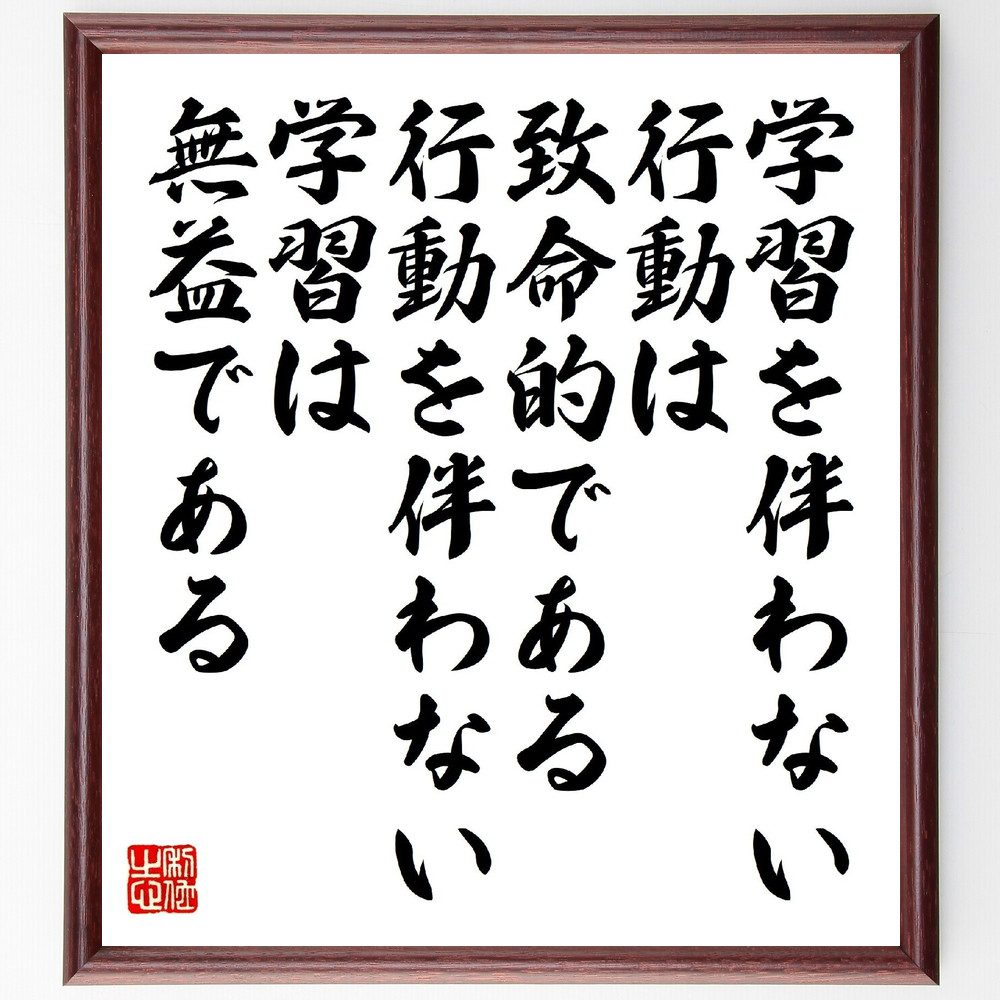 学習を伴わない
行動は
致命的である
行動を伴わない
学習は
無益である